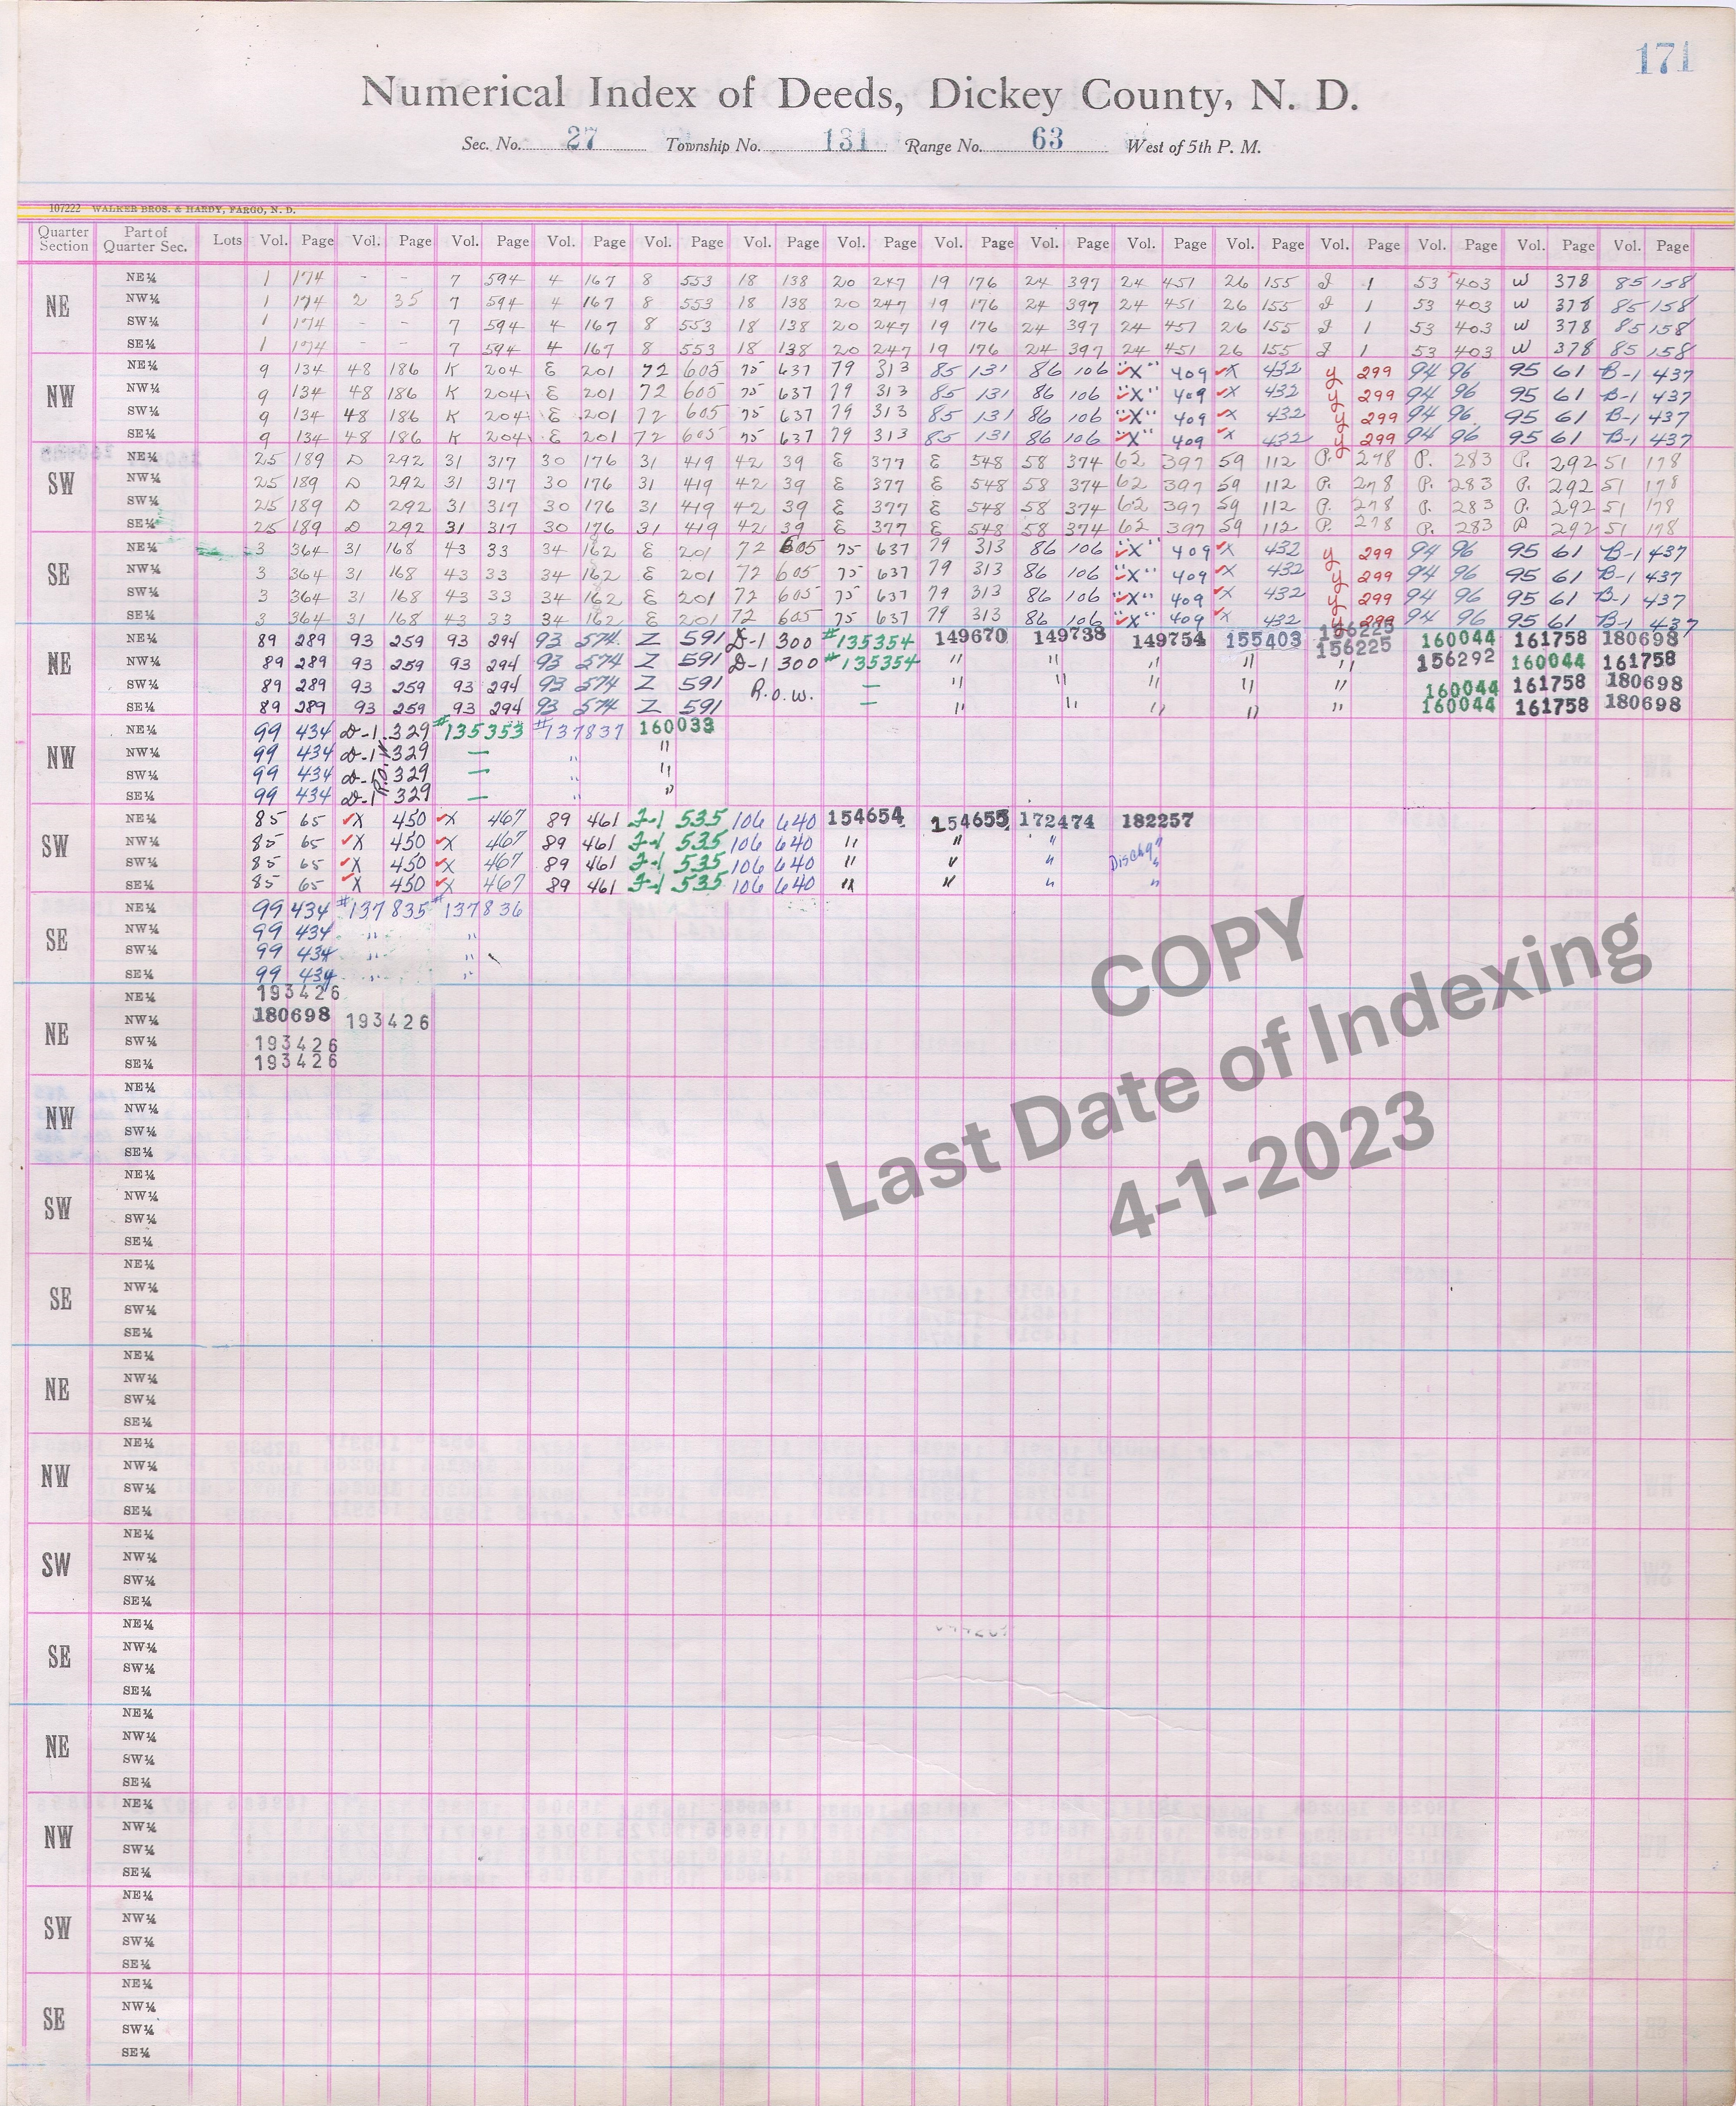 171
Numerical Index of Deeds, Dickey County, N. D.
Sec. No. 27 Township No. 131 Range No. 63 West of 5th P. M.
107222 WALKER BROS. & HARDY, FARGO, N. D.
Quarter Section Part of Quarter Sec. Lots Vol. Page Vol. Page Vol. Page Vol. Page Vol. Page Vol. Page Vol. Page Vol. Page Vol. Page Vol. Page Vol. Page Vol. Page Vol. Page Vol. Page Vol. Page
NE
NE¼ 1 174 - - 7 594 4 167 8 553 18 138 20 247 19 176 24 397 24 451 26 155 J 1 53 403 W 378 85 158
NW¼ 1 174 2 35 7 594 4 167 8 553 18 138 20 247 19 176 24 397 24 451 26 155 J 1 53 403 W 378 85 158
SW¼ 1 174 - - 7 594 4 167 8 553 18 138 20 247 19 176 24 397 24 451 26 155 J 1 53 403 W 378 85 158
SE¼ 1 174 - - 7 594 4 167 8 553 18 138 20 247 19 176 24 397 24 451 26 155 J 1 53 403 W 378 85 158
NW
NE¼ 9 134 48 186 K 204 E 201 72 605 75 637 79 313 85 131 86 106 ✓"X" 409 ✓X 432 y 299 94 96 95 61 B-1 437
NW¼ 9 134 48 186 K 204 E 201 72 605 75 637 79 313 85 131 86 106 ✓"X" 409 ✓X 432 y 299 94 96 95 61 B-1 437
SW¼ 9 134 48 186 K 204 E 201 72 605 75 637 79 313 85 131 86 106 ✓"X" 409 ✓X 432 y 299 94 96 95 61 B-1 437
SE¼ 9 134 48 186 K 204 E 201 72 605 75 637 79 313 85 131 86 106 ✓"X" 409 ✓X 432 y 299 94 96 95 61 B-1 437
SW
NE¼ 25 189 D 292 31 317 30 176 31 419 42 39 E 377 E 548 58 374 62 397 59 112 P. 278 P. 283 P. 292 51 178
NW¼ 25 189 D 292 31 317 30 176 31 419 42 39 E 377 E 548 58 374 62 397 59 112 P. 278 P. 283 P. 292 51 178
SW¼ 25 189 D 292 31 317 30 176 31 419 42 39 E 377 E 548 58 374 62 397 59 112 P. 278 P. 283 P. 292 51 179
SE¼ 25 189 D 292 31 317 30 176 31 419 42 39 E 377 E 548 58 374 62 397 59 112 P. 278 P. 283 P 292 51 178
SE
NE¼ 3 364 31 168 43 33 34 162 E 201 72 605 75 637 79 313 86 106 ✓"X" 409 ✓X 432 y 299 94 96 95 61 B-1 437
NW¼ 3 364 31 168 43 33 34 162 E 201 72 605 75 637 79 313 86 106 ✓"X" 409 ✓X 432 y 299 94 96 95 61 B-1 437
SW¼ 3 364 31 168 43 33 34 162 E 201 72 605 75 637 79 313 86 106 ✓"X" 409 ✓X 432 y 299 94 96 95 61 B-1 437
SE¼ 3 364 31 168 43 33 34 162 E 201 72 605 75 637 79 313 86 106 ✓"X" 409 ✓X 432 y 299 94 96 95 61 B-1 437
NE
156225
NE¼ 89 289 93 259 93 294 93 574 Z 591 D-1 300 #135354 149670 149738 149754 155403 156225 160044 161758 180698
NW¼ 89 289 93 259 93 294 93 574 Z 591 D-1 300 #135354 " " " " " 156292 160044 161758
SW¼ 89 289 93 259 93 294 93 574 Z 591 R.o.w. — " " " " " 160044 161758 180698
SE¼ 89 289 93 259 93 294 93 574 Z 591 — " " " " " 160044 161758 180698
NW
NE¼ 99 434 D-1 329 #135353 #137837 160033
NW¼ 99 434 D-1 329 — " "
SW¼ 99 434 D-1 329 — " "
SE¼ 99 434 D-1 329 — " "
SW
NE¼ 85 65 ✓X 450 ✓X 467 89 461 J-1 535 106 640 154654 154655 172474 182257
NW¼ 85 65 ✓X 450 ✓X 467 89 461 J-1 535 106 640 " " " "
SW¼ 85 65 ✓X 450 ✓X 467 89 461 J-1 535 106 640 " " " Dischg "
SE¼ 85 65 ✓X 450 ✓X 467 89 461 J-1 535 106 640 " " " "
SE
NE¼ 99 434 #137835 #137836
NW¼ 99 434 " "
SW¼ 99 434 " "
SE¼ 99 434 " "
NE
NE¼ 193426
NW¼ 180698 193426
SW¼ 193426
SE¼ 193426
NW
NE¼
NW¼
SW¼
SE¼
SW
NE¼
NW¼
SW¼
SE¼
SE
NE¼
NW¼
SW¼
SE¼
NE
NE¼
NW¼
SW¼
SE¼
NW
NE¼
NW¼
SW¼
SE¼
SW
NE¼
NW¼
SW¼
SE¼
SE
NE¼
NW¼
SW¼
SE¼
NE
NE¼
NW¼
SW¼
SE¼
NW
NE¼
NW¼
SW¼
SE¼
SW
NE¼
NW¼
SW¼
SE¼
SE
NE¼
NW¼
SW¼
SE¼
COPY
Last Date of Indexing
4-1-2023